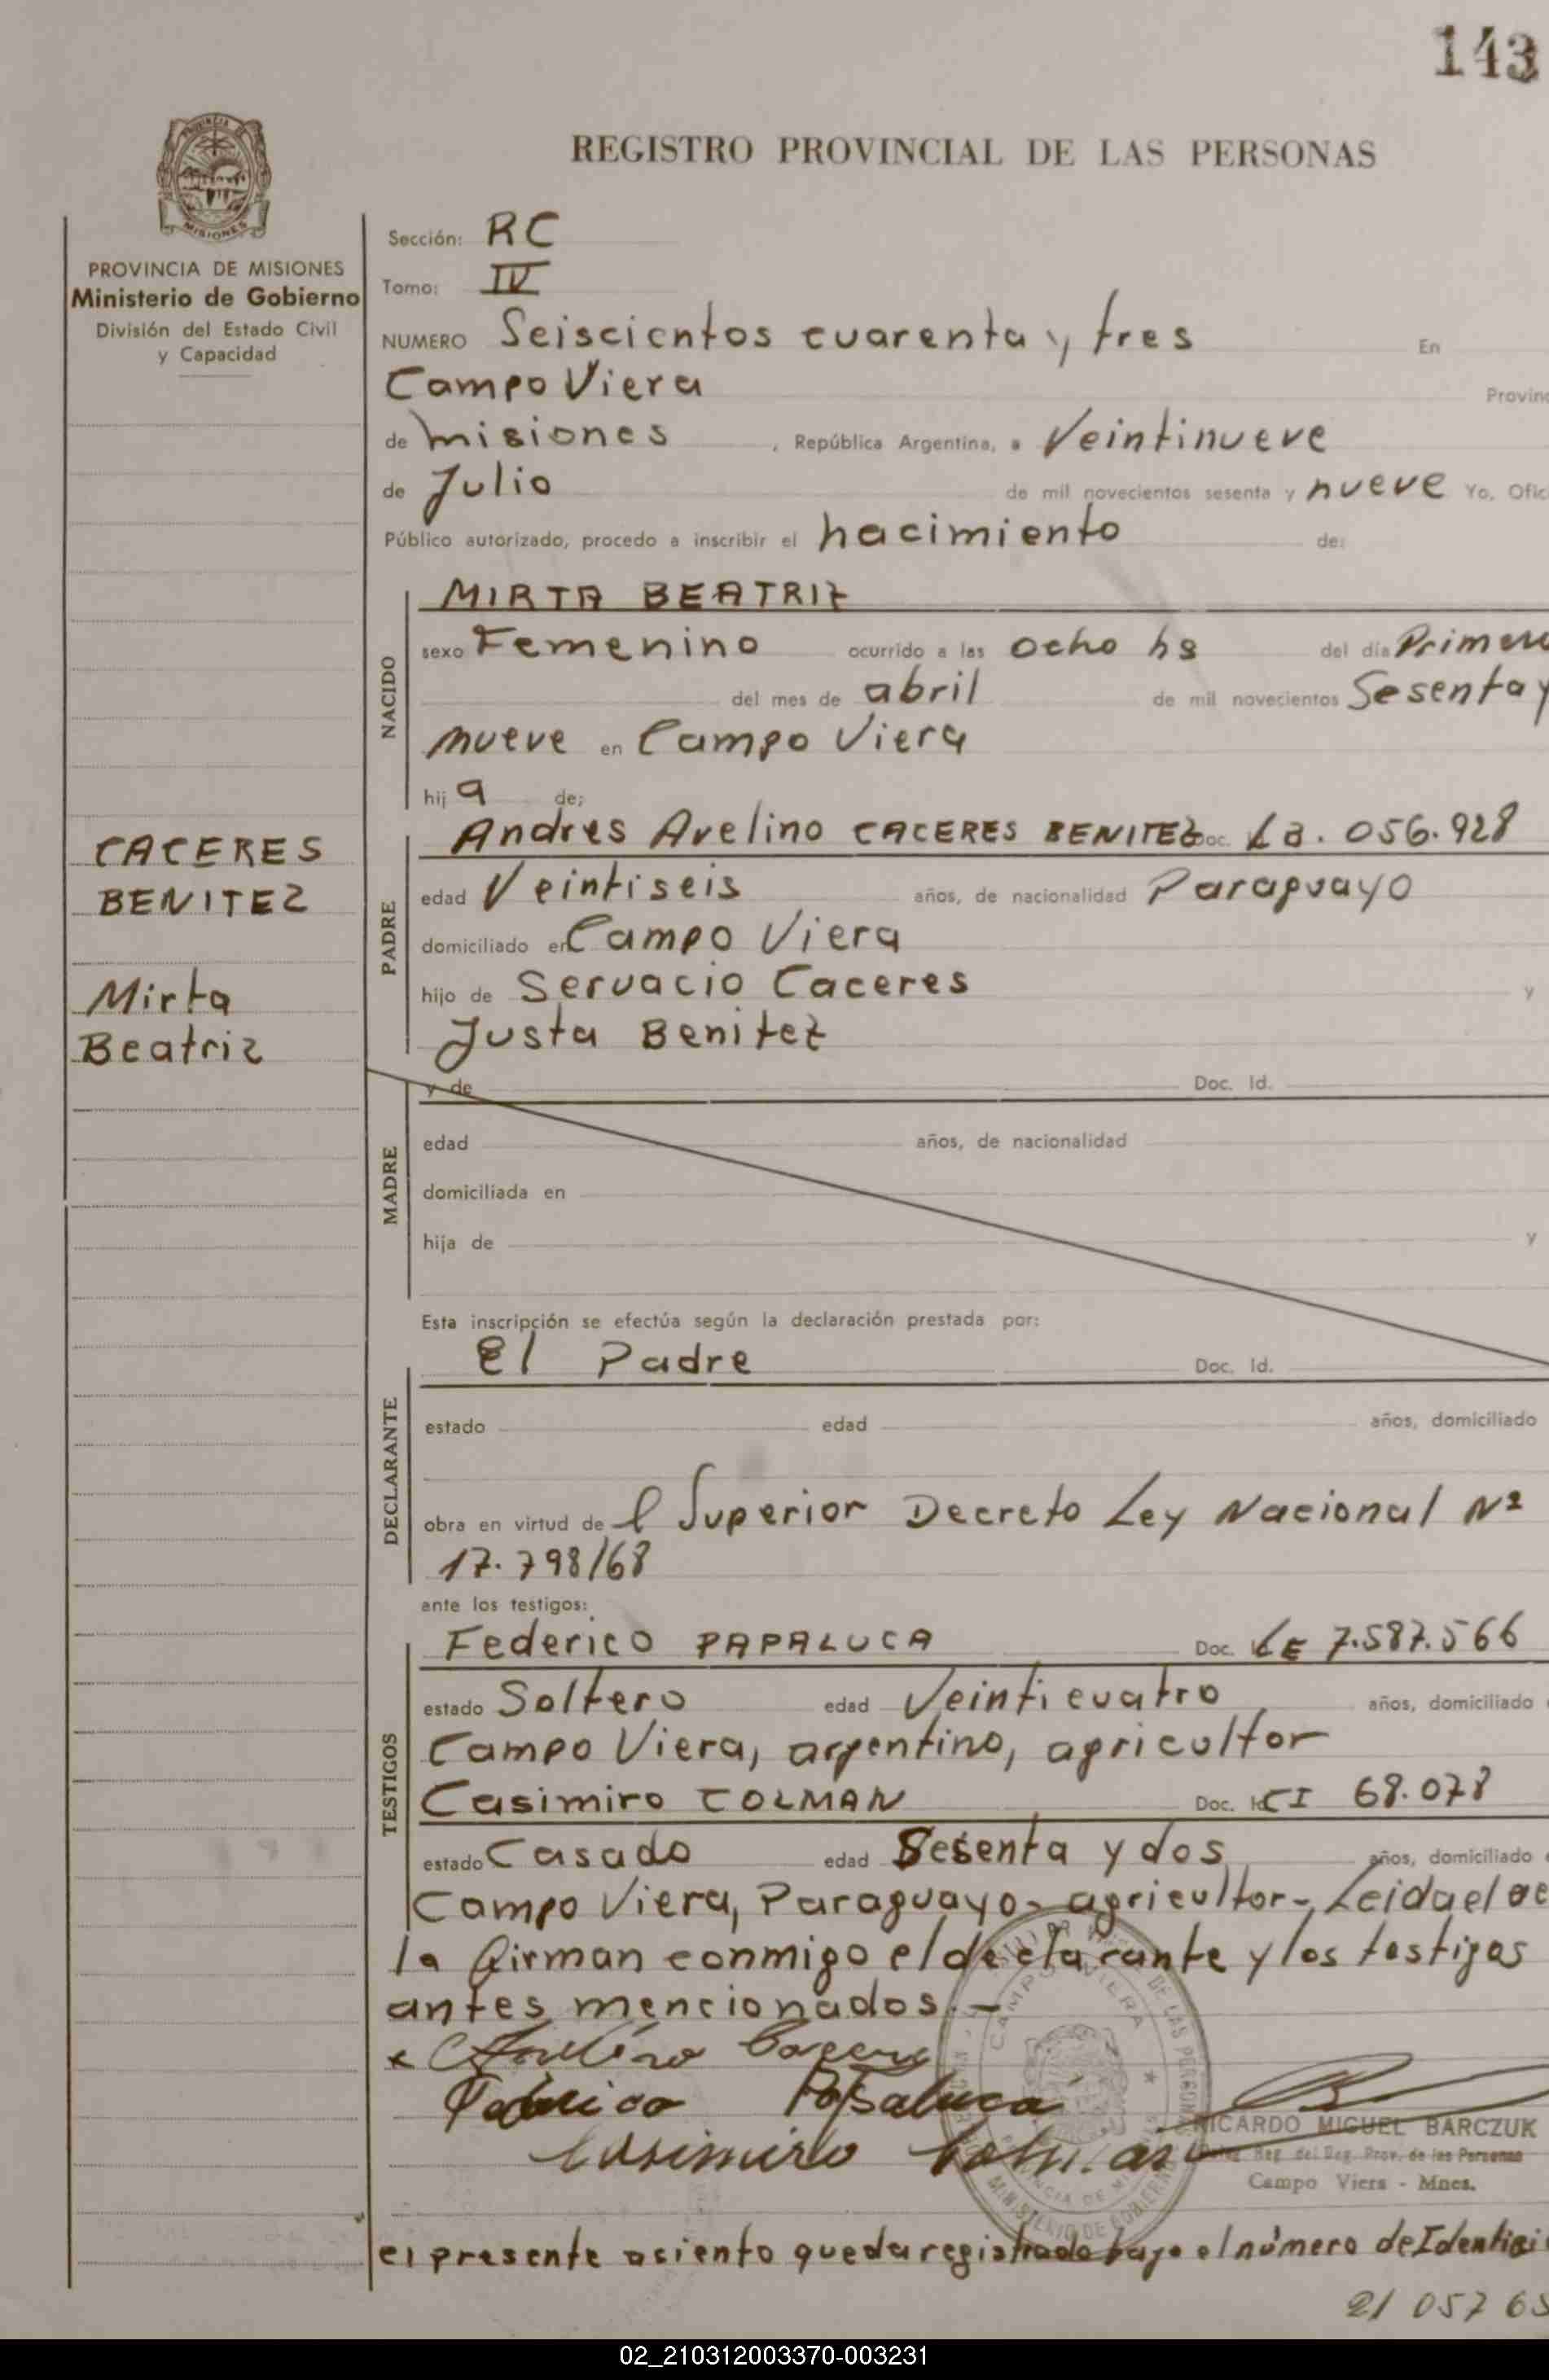 143
REGISTRO PROVINCIAL DE LAS PERSONAS
MISIONES
PROVINCIA DE MISIONES
Ministerio de Gobierno
División del Estado Civil
y Capacidad
Sección: RC
Tomo: IV
NUMERO Seiscientos cuarenta y tres En
Campo Viera Provinc
de misiones , República Argentina, a Veintinueve
de Julio de mil novecientos sesenta y nueve Yo, Ofic
Público autorizado, procedo a inscribir el nacimiento de:
NACIDO
MIRTA BEATRIZ
sexo Femenino ocurrido a las ocho hs del día Primero
del mes de abril de mil novecientos Sesenta y
nueve en Campo Viera
hij a de;
CACERES
BENITEZ
Mirta
Beatriz
PADRE
Andres Avelino CACERES BENITEZ Doc. 056.928
edad Veintiseis años, de nacionalidad Paraguayo
domiciliado en Campo Viera
hijo de Servacio Caceres y
Justa Benitez
MADRE
y de Doc. Id.
edad años, de nacionalidad
domiciliada en
hija de y
Esta inscripción se efectúa según la declaración prestada por:
DECLARANTE
El Padre Doc. Id.
estado edad años, domiciliado
obra en virtud de l Superior Decreto Ley Nacional Nº
17.798/68
ante los testigos:
TESTIGOS
Federico PAPALUCA Doc. LE 7.587.566
estado Soltero edad Veinticuatro años, domiciliado
Campo Viera, argentino, agricultor
Casimiro COLMAN Doc. Id CI 68.078
estado Casado edad Sesenta y dos años, domiciliado
Campo Viera, Paraguayo, agricultor-, Leida el ac
la firman conmigo el declarante y los testigos
antes mencionados.-
x Avelino Caceres
Federico Papaluca
Casimiro Colman
RICARDO MIGUEL BARCZUK
Reg. del Reg. Prov. de las Personas
Campo Viera - Mnes.
CAMPO VIERA
DE LAS PERSONAS
MINISTERIO DE GOBIERNO
el presente asiento queda registrado bajo el número de Identifi
21 057 65
02_210312003370-003231